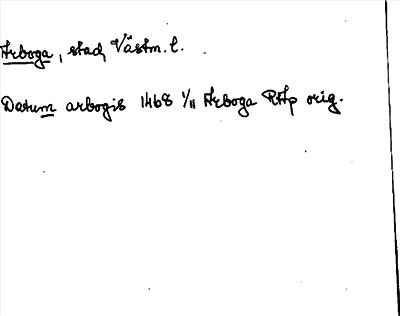 Arboga, stad, Västm. l.
Datum arbogis 1468 1/11 Arboga RAp orig.